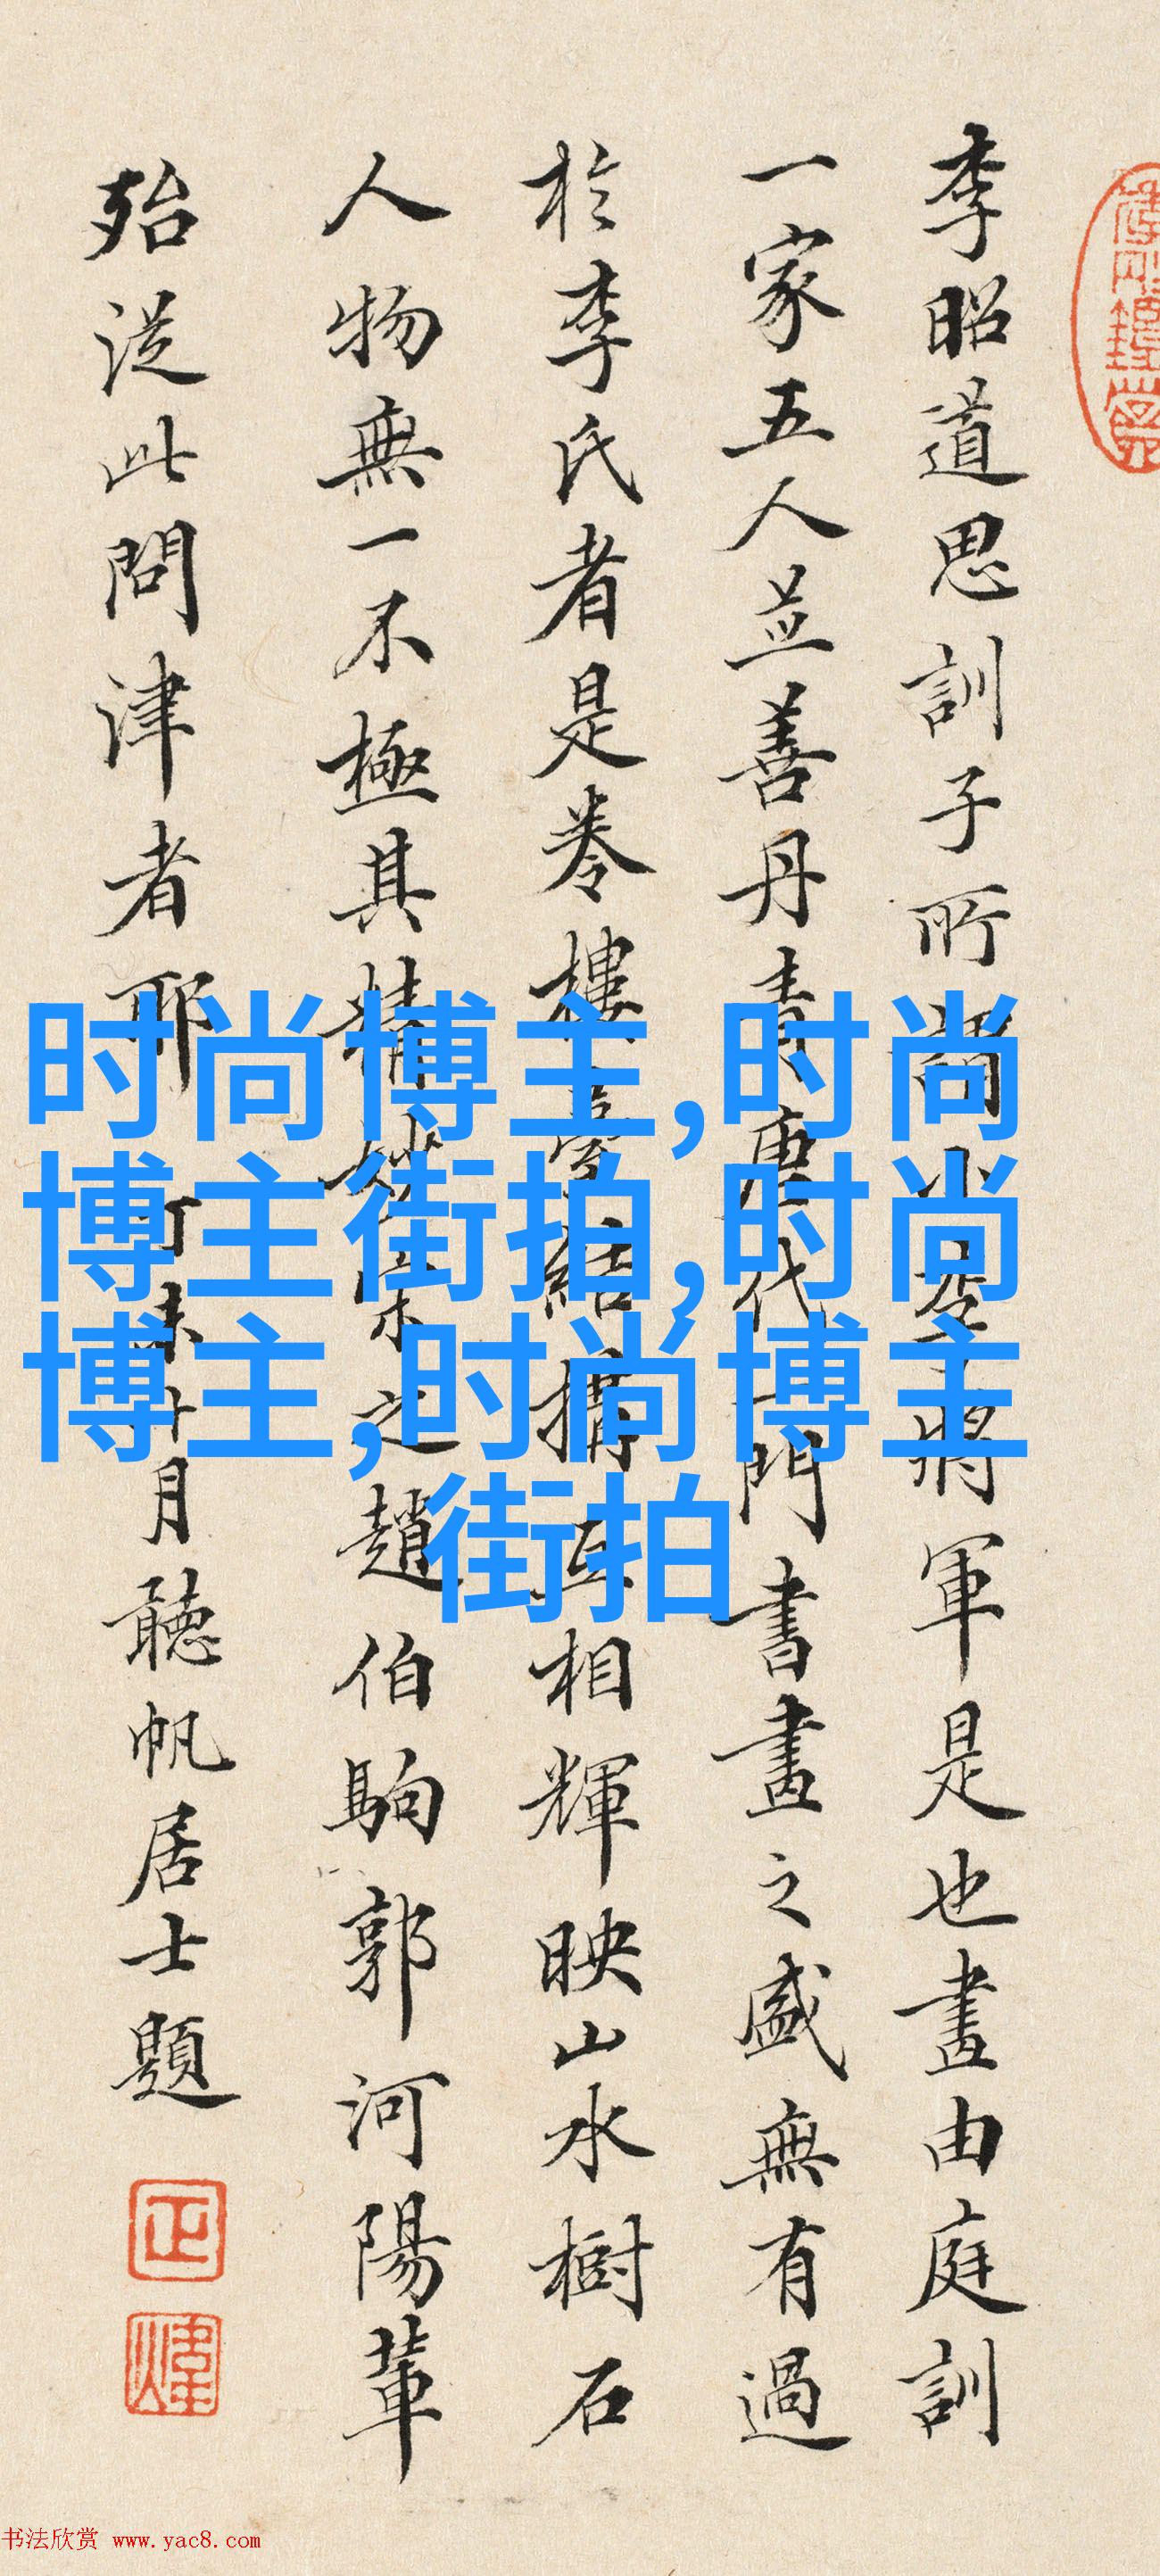 李昭道思訓子所謂小李將軍是也畫由庭訓
一家五人並善丹青唐代一門書畫之盛無有過
於李氏者是卷樓臺結構互相輝映山水樹石
人物無一不極其精妙宋之趙伯駒郭河陽輩
殆從此問津者耶 丁未廿月聽帆居士題
时尚博主,时尚
博主街拍,时尚
博主,时尚博主
街拍
书法欣赏 www.yac8.com